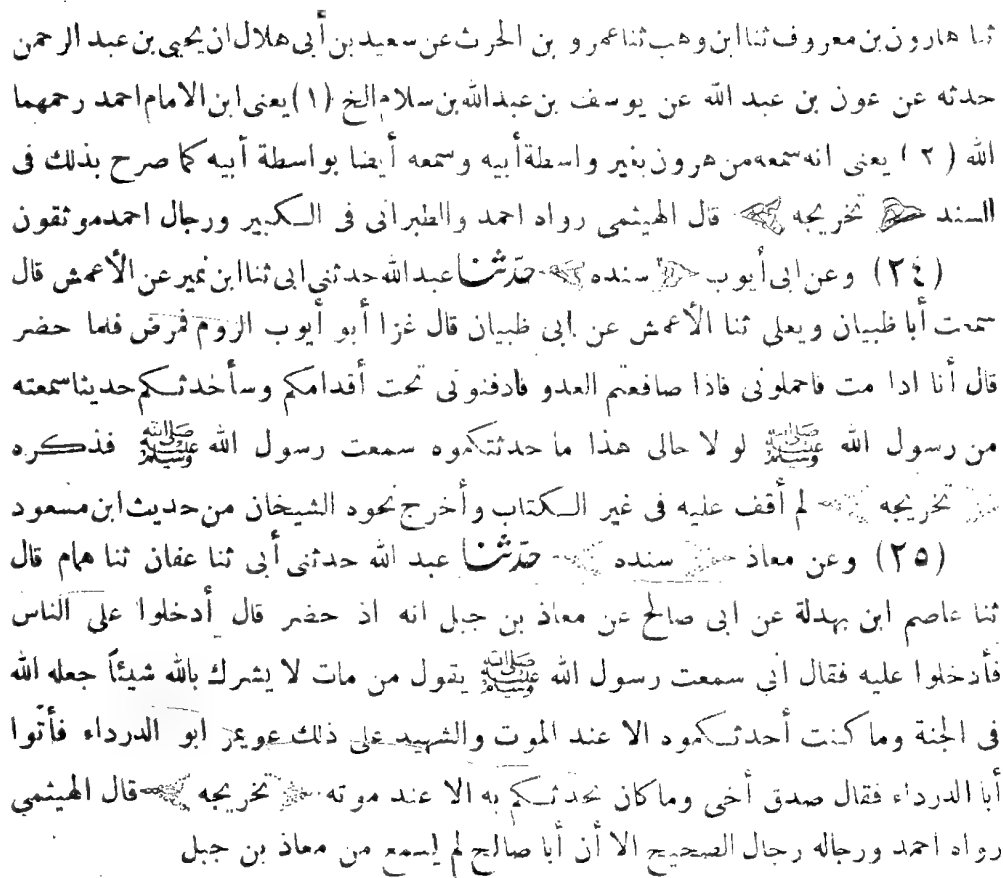 ثنا هارون بن معروف ثنا ابن وهب ثنا عمرو بن الحرث عن سعيد بن أبى هلال ان يحيى بن عبد الرحمن
حدثه عن عون بن عبد الله عن يوسف بن عبدالله بن سلام الخ (١) يعنى ابن الامام احمد رحمهما
الله (٢) يعنى انه سمعه من هرون بغير واسطة أبيه وسمعه أيضا بواسطة أبيه كما صرح بذلك فى
السند تخريجه قال الهيثمى رواه احمد والطبرانى فى الكبير ورجال احمد موثقون
(٢٤) وعن ابى أيوب سنده حدثنا عبدالله حدثنى ابى ثنا ابن نمير عن الأعمش قال
سمعت أبا ظبيان ويعلى ثنا الأعمش عن ابى ظبيان قال غزا أبو أيوب الروم فمرض فلما حضر
قال أنا اذا مت فاحملونى فاذا صافعتم العدو فادفنونى تحت أقدامكم وسأحدثكم حديثا سمعته
من رسول الله ﷺ لو لا حالى هذا ما حدثتكموه سمعت رسول الله ﷺ فذكره
تخريجه لم أقف عليه فى غير الكتاب وأخرج نحوه الشيخان من حديث ابن مسعود
(٢٥) وعن معاذ سنده حدثنا عبد الله حدثنى أبى ثنا عفان ثنا همام قال
ثنا عاصم ابن بهدلة عن ابى صالح عن معاذ بن جبل انه اذ حضر قال أدخلوا على الناس
فأدخلوا عليه فقال انى سمعت رسول الله ﷺ يقول من مات لا يشرك بالله شيئاً جعله الله
فى الجنة وما كنت أحدثكموه الا عند الموت والشهيد على ذلك عويمر ابو الدرداء فأتوا
أبا الدرداء فقال صدق أخى وما كان يحدثكم به الا عند موته تخريجه قال الهيثمي
رواه احمد ورجاله رجال الصحيح الا أن أبا صالح لم يسمع من معاذ بن جبل